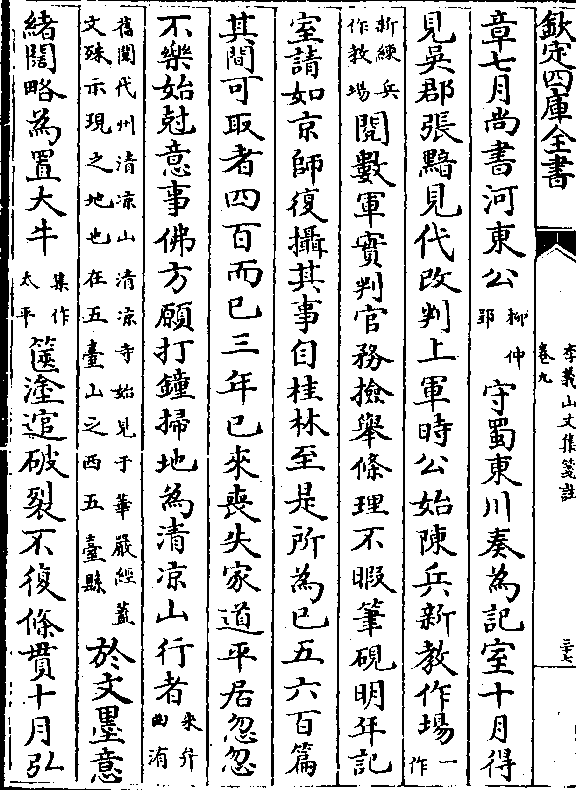 欽定四庫全書
李義山文集箋註
卷九
三十七
章七月尚書河東公柳仲郢守蜀東川奏為記室十月得
見吳郡張黯見代改判上軍時公始陳兵新教作場一作
新練兵作教場閱數軍實判官務檢舉條理不暇筆硯明年記
室請如京師復攝其事自桂林至是所為已五六百篇
其間可取者四百而已三年已來喪失家道平居忽忽
不樂始尅意事佛方願打鐘掃地為清凉山行者朱弁曲洧
舊聞代州清涼山清涼寺始見于華嚴經蓋文殊示現之地也在五臺山之西五臺縣於文墨意
緒闊略為置大牛集作太平篋塗逭破裂不復條貫十月弘